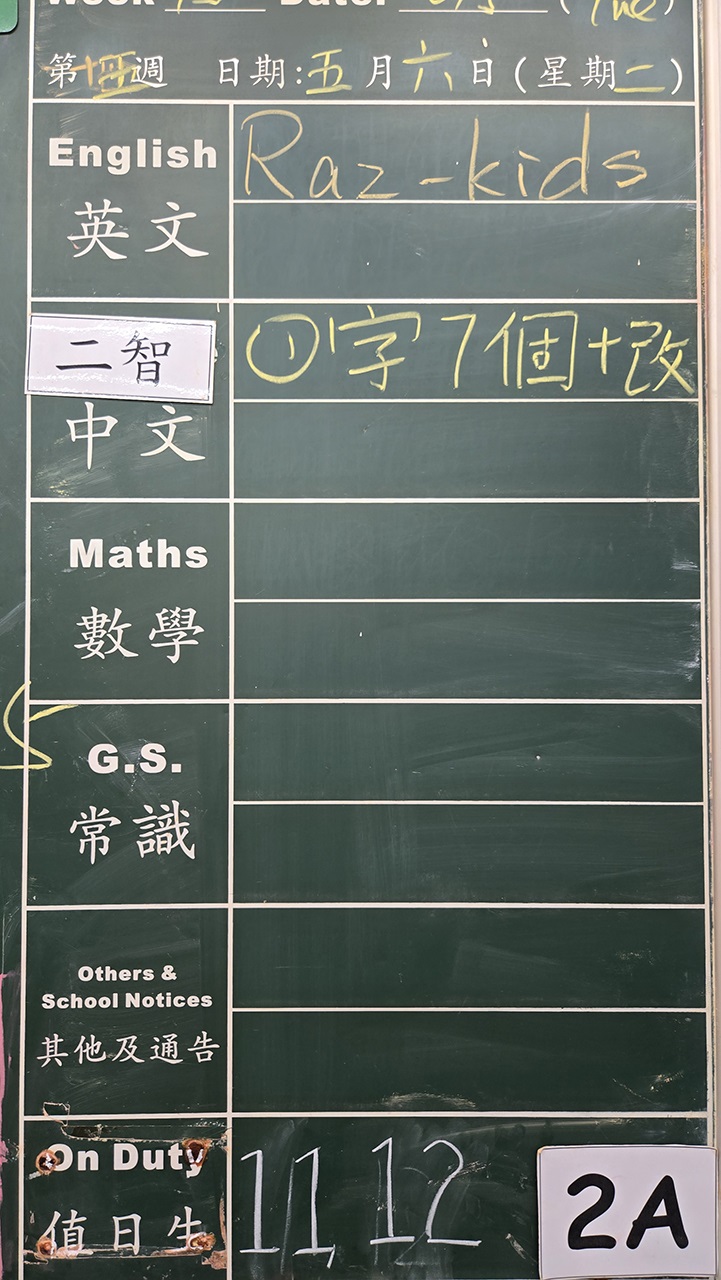 Week Date: (Tue)
第十五週 日期:五月六日(星期二)
English Raz-kids
英文
二智 ①字7個+改
中文
Maths
數學
G.S.
常識
Others &
School Notices
其他及通告
On Duty 11, 12
值日生
2A